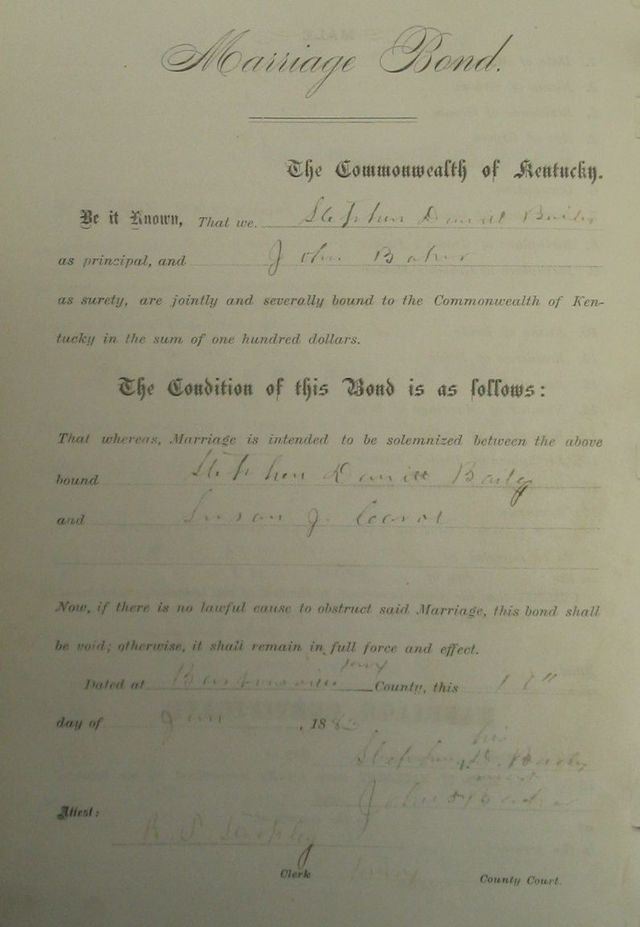 Marriage Bond.
The Commonwealth of Kentucky.
Be it Known, That we. Stephen Daniel Baily
as principal, and John
as surety, are jointly and severally bound to the Commonwealth of Ken-
tucky in the sum of one hundred dollars.
The Condition of this Bond is as follows:
That whereas, Marriage is intended to be solemnized between the above
bound Stephen Daniel Baily
and Susan J.
Now, if there is no lawful cause to obstruct said Marriage, this bond shall
be void; otherwise, it shall remain in full force and effect.
Knox
Dated at Barbourville County, this
day of Jan , 188
his
Stephen D. Baily
mark
John
Attest:
Clerk Knox County Court.